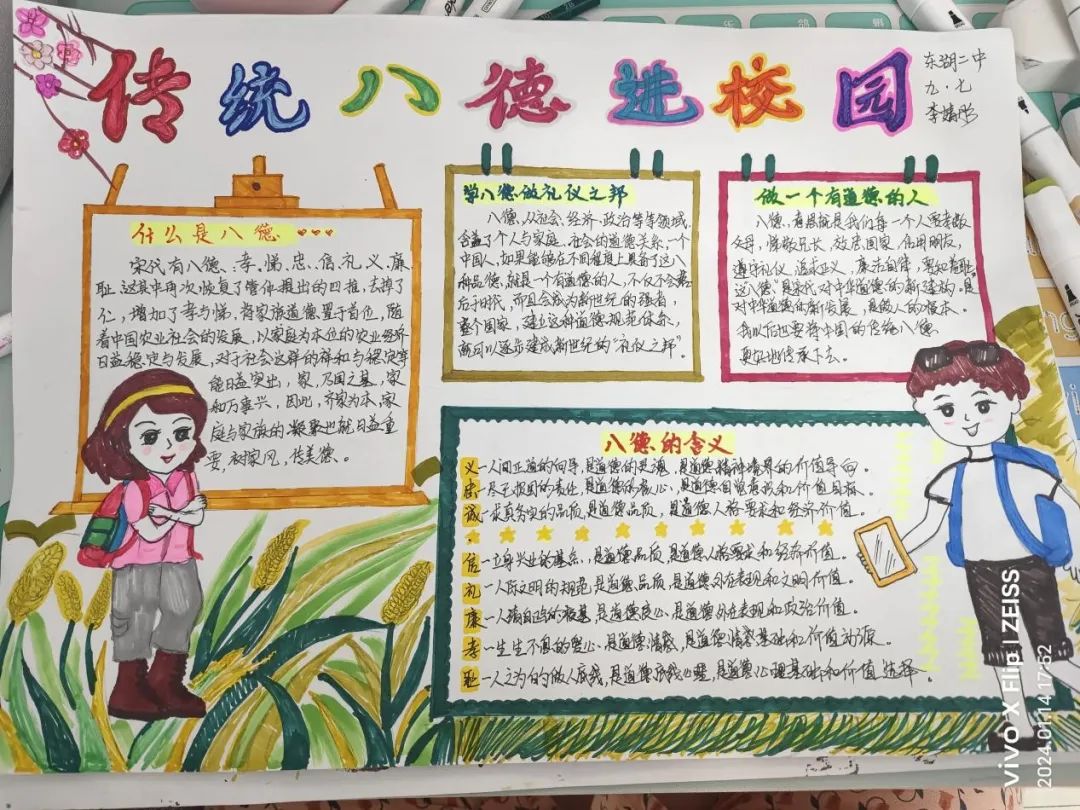 传统八德进校园
东湖二中
九·七
李婧彤
什么是八德
宋代有八德、孝、悌、忠、信、礼、义、廉、
耻,这其中再次恢复了管仲提出的四维,去掉了
仁,增加了孝与悌,将家族道德置于首位,随
着中国农业社会的发展,以家庭为本位的农业经济
日益稳定与发展,对于社会这样的祥和与稳定等
能日益突出,家,乃国之基,家
和万事兴,因此,齐家为本,家
庭与家族的凝聚也就日益重
要,树家风,传美德。
学八德做礼仪之邦
八德,从社会、经济、政治等等领域,
含盖了个人与家庭、社会的道德关系,一个
中国人,如果能够在不同程度上具备了这八
种品德,就是一个有道德的人,不仅不会落
后于时代,而且会成为新世纪的强者,
整个国家,建立这种道德规范体系,
就可以逐步建成新世纪的“礼仪之邦”。
做一个有道德的人
八德,意思就是我们每一个人要孝敬
父母,尊敬兄长,效忠国家,信用朋友,
遵守礼仪,追求正义,廉洁自律,要知羞耻。
这八德“是宋代对中华道德的新建构。是
对中华道德的新发展,是做人的根本。
我以后也要将中国的传统八德
更好地传承下去。
八德的含义
义—人间正道的向导,是道德的灵魂,是道德精神境界的价值导向。
忠—尽于报国的责任,是道德的核心,是道德自觉意识和价值目标。
诚—求真务实的品质,是道德品质,是道德人格要求和经济价值。
信—立身兴业的基点,是道德品质,是道德人格要求和经济价值。
礼—人际文明的规范,是道德品质,是道德外在表现和文明价值。
廉—人清自鸣的根基,是道德良心,是道德外在表现和政治价值。
孝—生生不息的爱心,是道德情感,是道德情感基础和价值动源。
耻—人之为的做人底线,是道德底线心理,是道德心理基础和价值选择。
vivo X Flip | ZEISS
2024.01.14 17:52